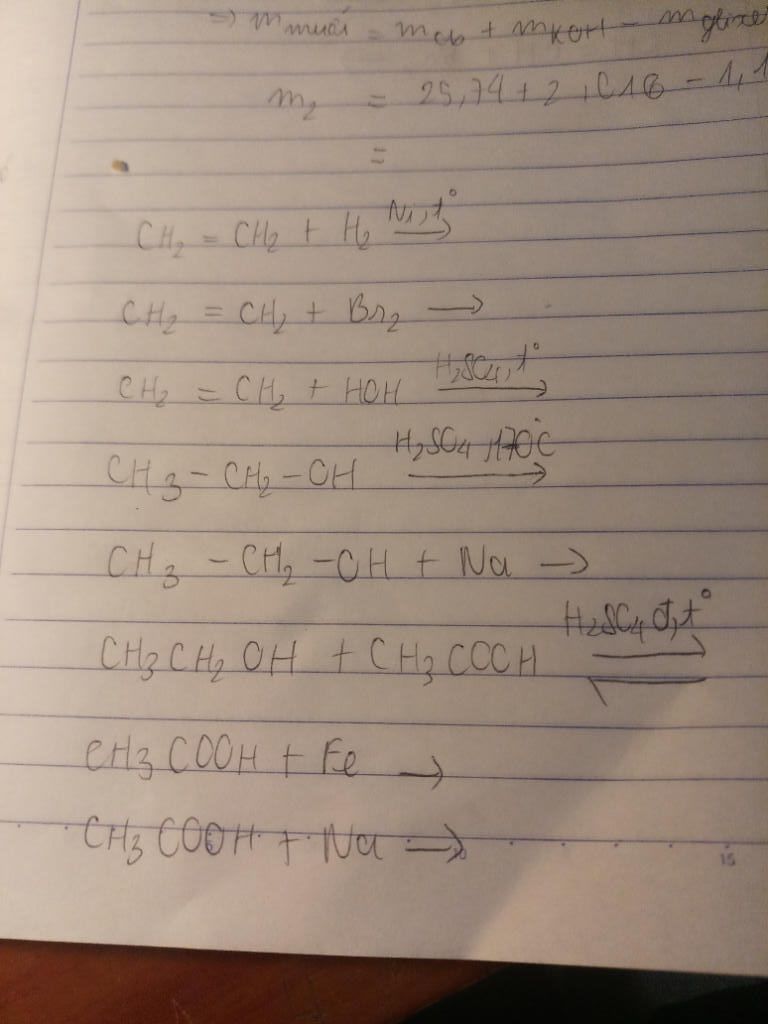 => m muối = m cb + m KOH - m glixe
m₂ = 25,74 + 2 . - 1,1
=
CH₂ = CH₂ + H₂ Ni, t° →
CH₂ = CH₂ + Br₂ →
CH₂ = CH₂ + HOH H₂SO₄, t° →
CH₃ - CH₂ - OH H₂SO₄, 170°C →
CH₃ - CH₂ - OH + Na →
CH₃CH₂OH + CH₃COOH H₂SO₄ đ, t° ⇌
CH₃COOH + Fe →
CH₃COOH + Na →
10 15